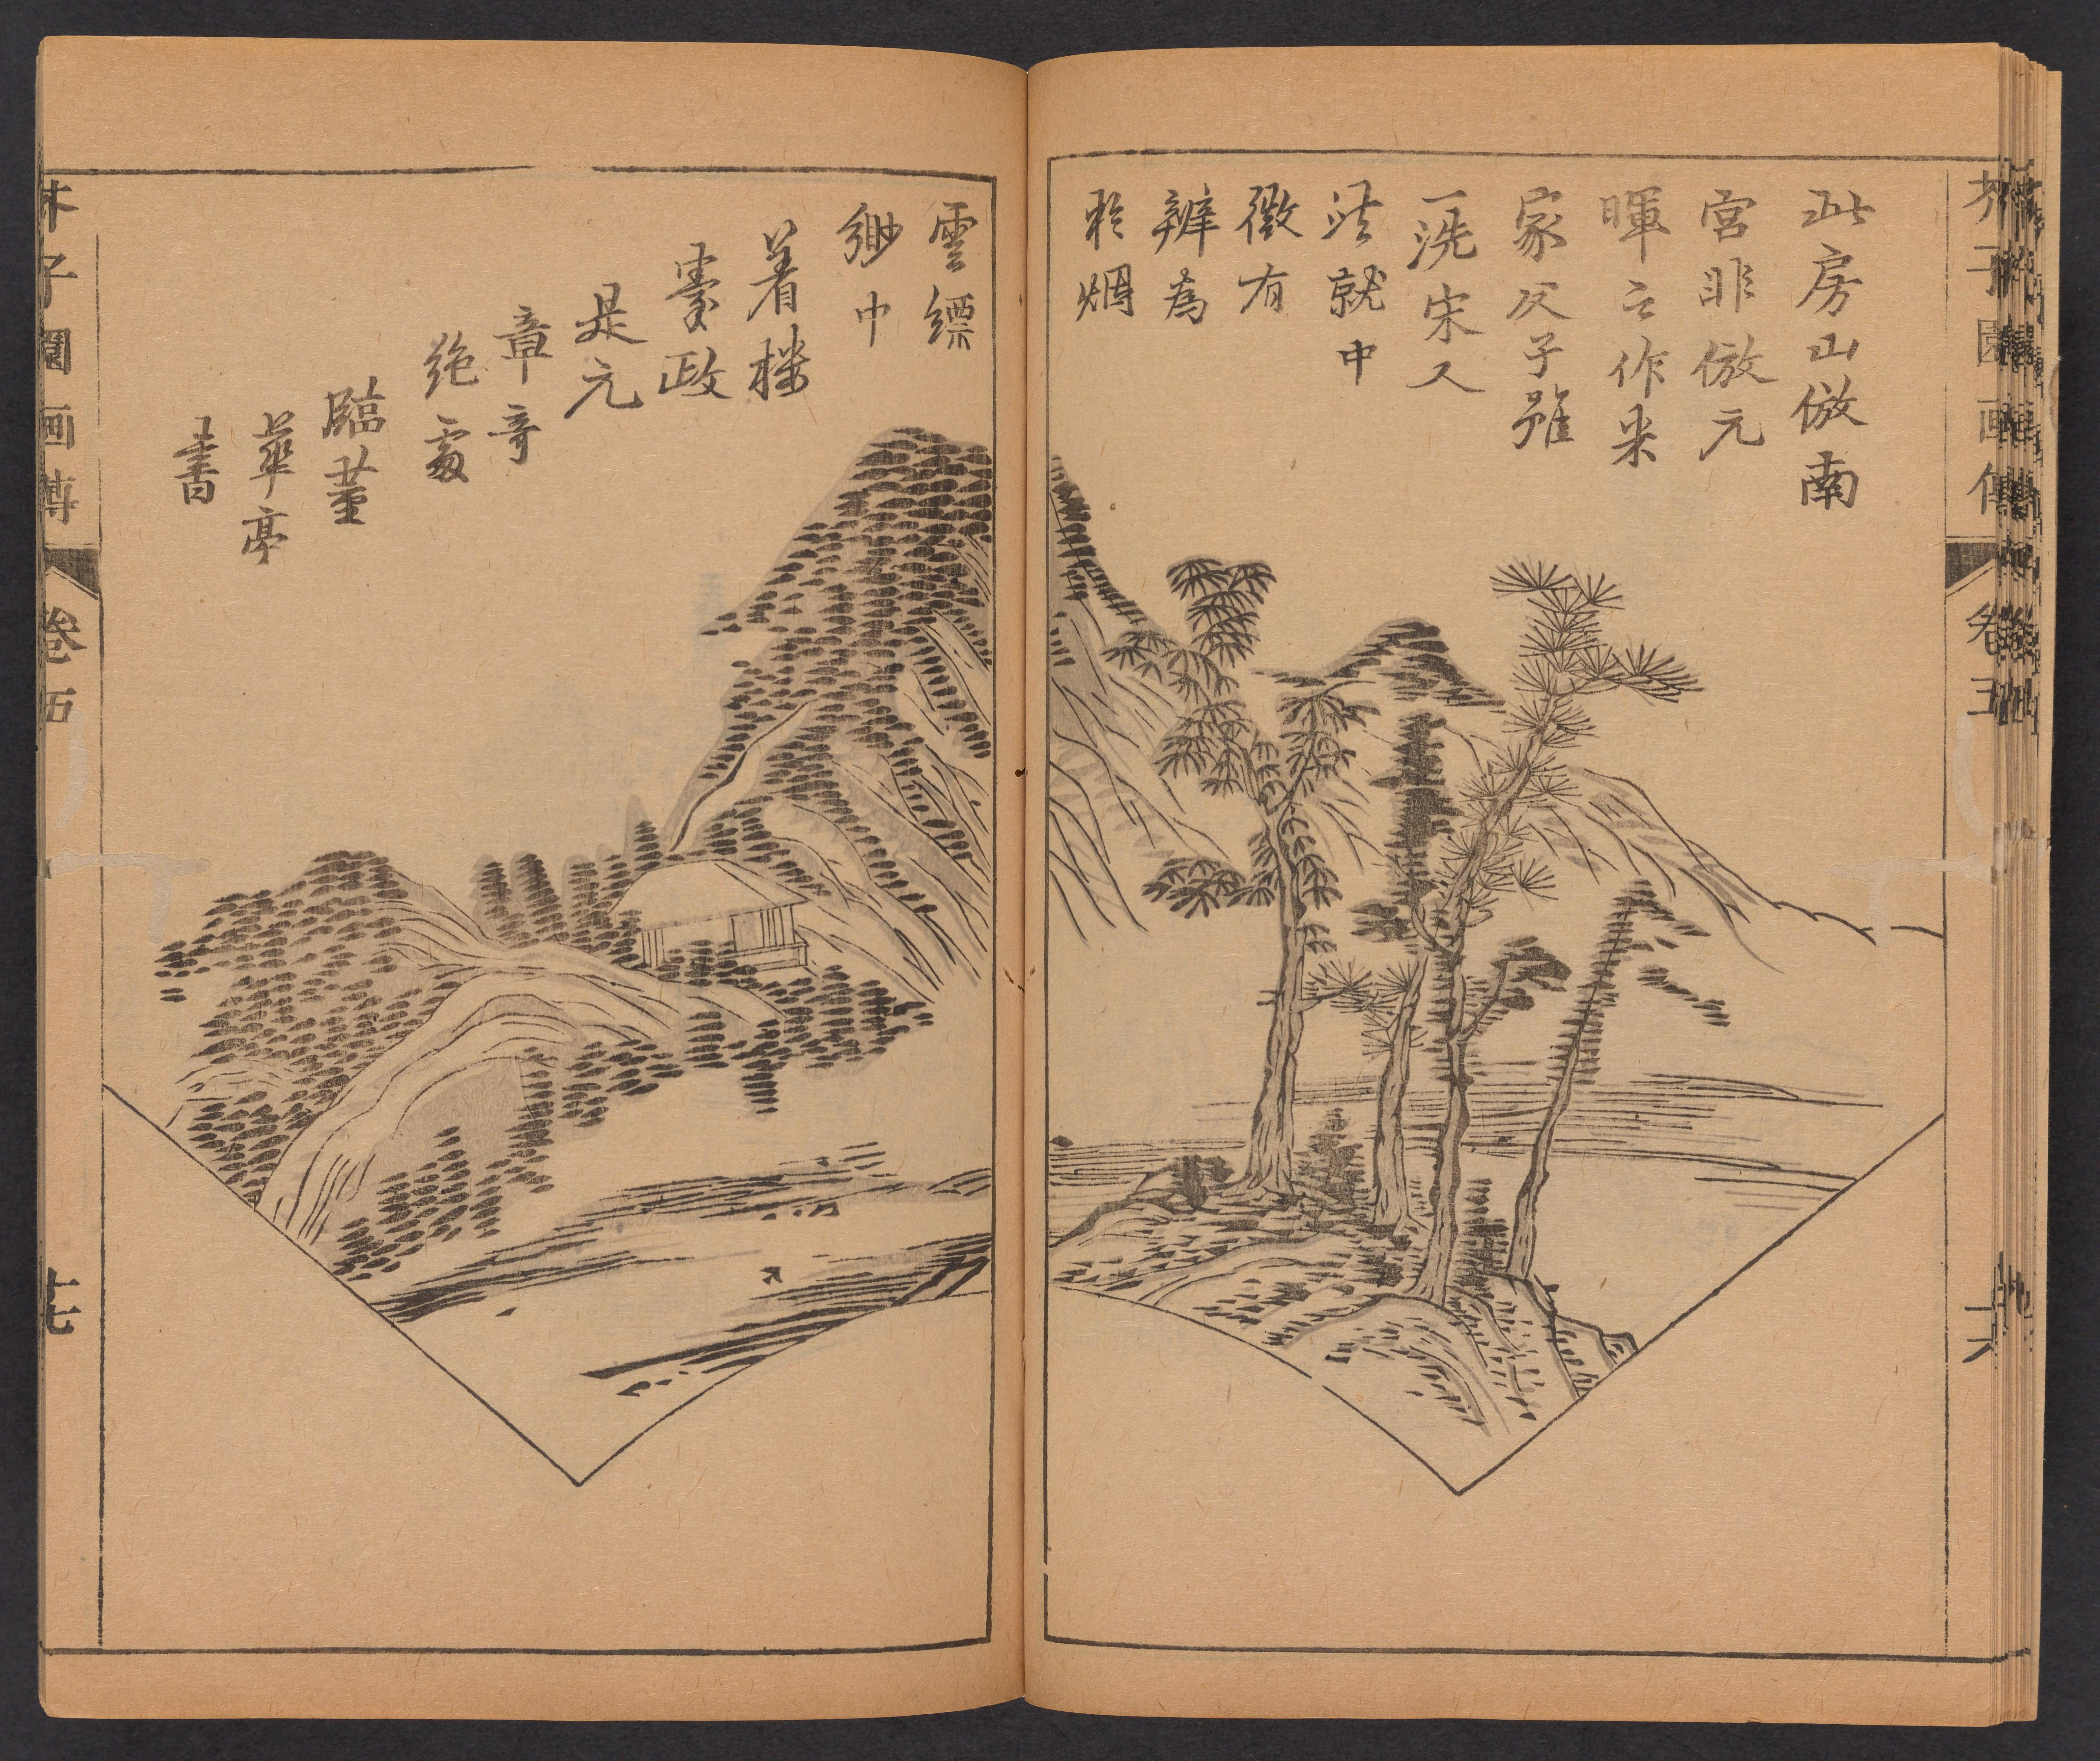 芥子園画傳
卷五
十六
此房山倣南
宮非倣元
暉之作米
家父子雖
一洗宋人
法就中
微有
辨為
於烟
雲縹
緲中
着樓
臺政
是元
章奇
絶處
臨董
華亭
書
芥子園画傳
卷五
十七